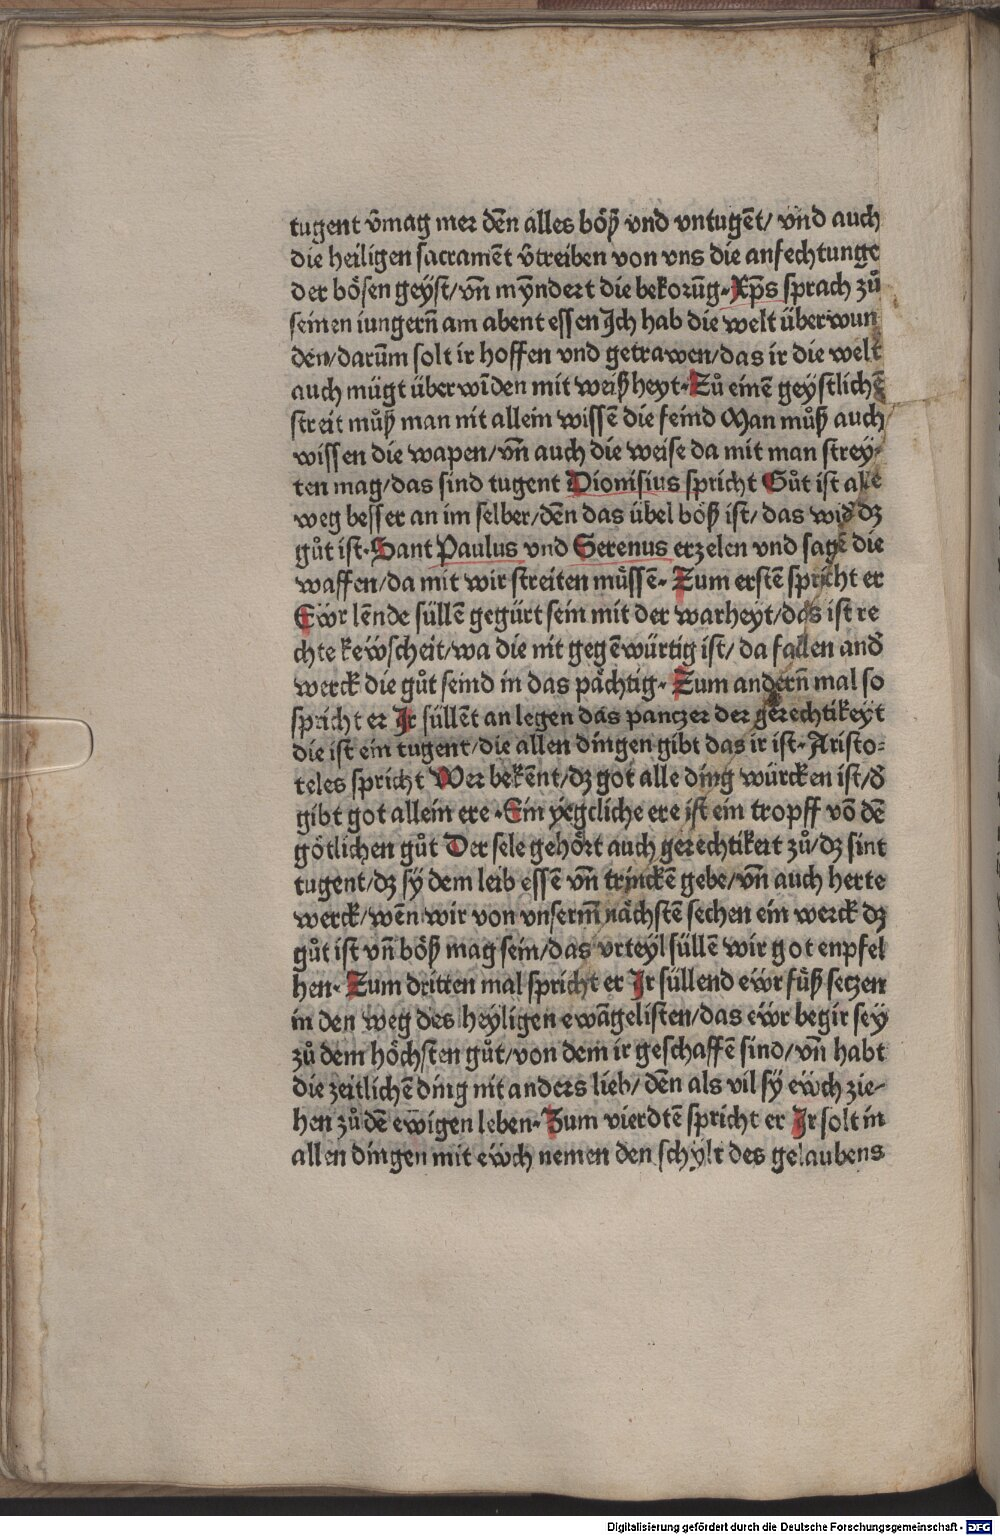 tugent v̄mag mer dēn alles böß vnd vntugēt/ vnd auch
die heiligen sacramēt v̄treiben von vns die anfechtunge
der bösen geyst/vn̄ mÿndert die bekorūg. Xp̄s sprach zů
seinen iungern̄ am abent essen Jch hab die welt überwun
den/darūm solt ir hoffen vnd getrawen/das ir die welt
auch mügt überwīden mit weißheyt. Zů einē geystlichē
streit můß man nit allein wissē die feind Man můß auch
wissen die wapen/vn̄ auch die weise da mit man strey⸗
ten mag/das sind tugent Dionisius spricht Gůt ist alle
weg besser an im selber/dēn das übel böß ist/das wid̄ dz
gůt ist. Sant Paulus vnd Serenus erzelen vnd sagē die
waffen/da mit wir streiten müssē. Zum erstē spricht er
Ewr lēnde süllē gegürt sein mit der warheyt/das ist re
chte kewscheit/wa die nit gegēwürtig ist/ da fallen and̄
werck die gůt seind in das pächtig. Zum andern̄ mal so
spricht er Jr süllēt an legen das panczer der gerechtikeyt
die ist ein tugent/die allen dingen gibt das ir ist. Aristo⸗
teles spricht Wer bekēnt/dz got alle ding würcken ist/d̄
gibt got allein ere. Ein yegcliche ere ist ein tropff vō dē
götlichen gůt Der sele gehört auch gerechtikeit zů/dz sint
tugent/dz sÿ dem leib essē vn̄ trinckē gebe/vn̄ auch herte
werck/wēn wir von vnserm̄ nächstē sechen ein werck dz
gůt ist vn̄ böß mag sein/das vrteyl süllē wir got enpfel
hen. Zum dritten mal spricht er Jr süllend ewr füß seczen
in den weg des heyligen ewāgelisten/das ewr begir sey
zů dem höchsten gůt/von dem ir geschaffē sind/vn̄ habt
die zeitlichē ding nit anders lieb/dēn als vil sÿ ewch zie⸗
hen zů dē ewigen leben. Zum vierdtē spricht er Jr solt in
allen dingen mit ewch nemen den schylt des gelaubens
Digitalisierung gefördert durch die Deutsche Forschungsgemeinschaft - DFG